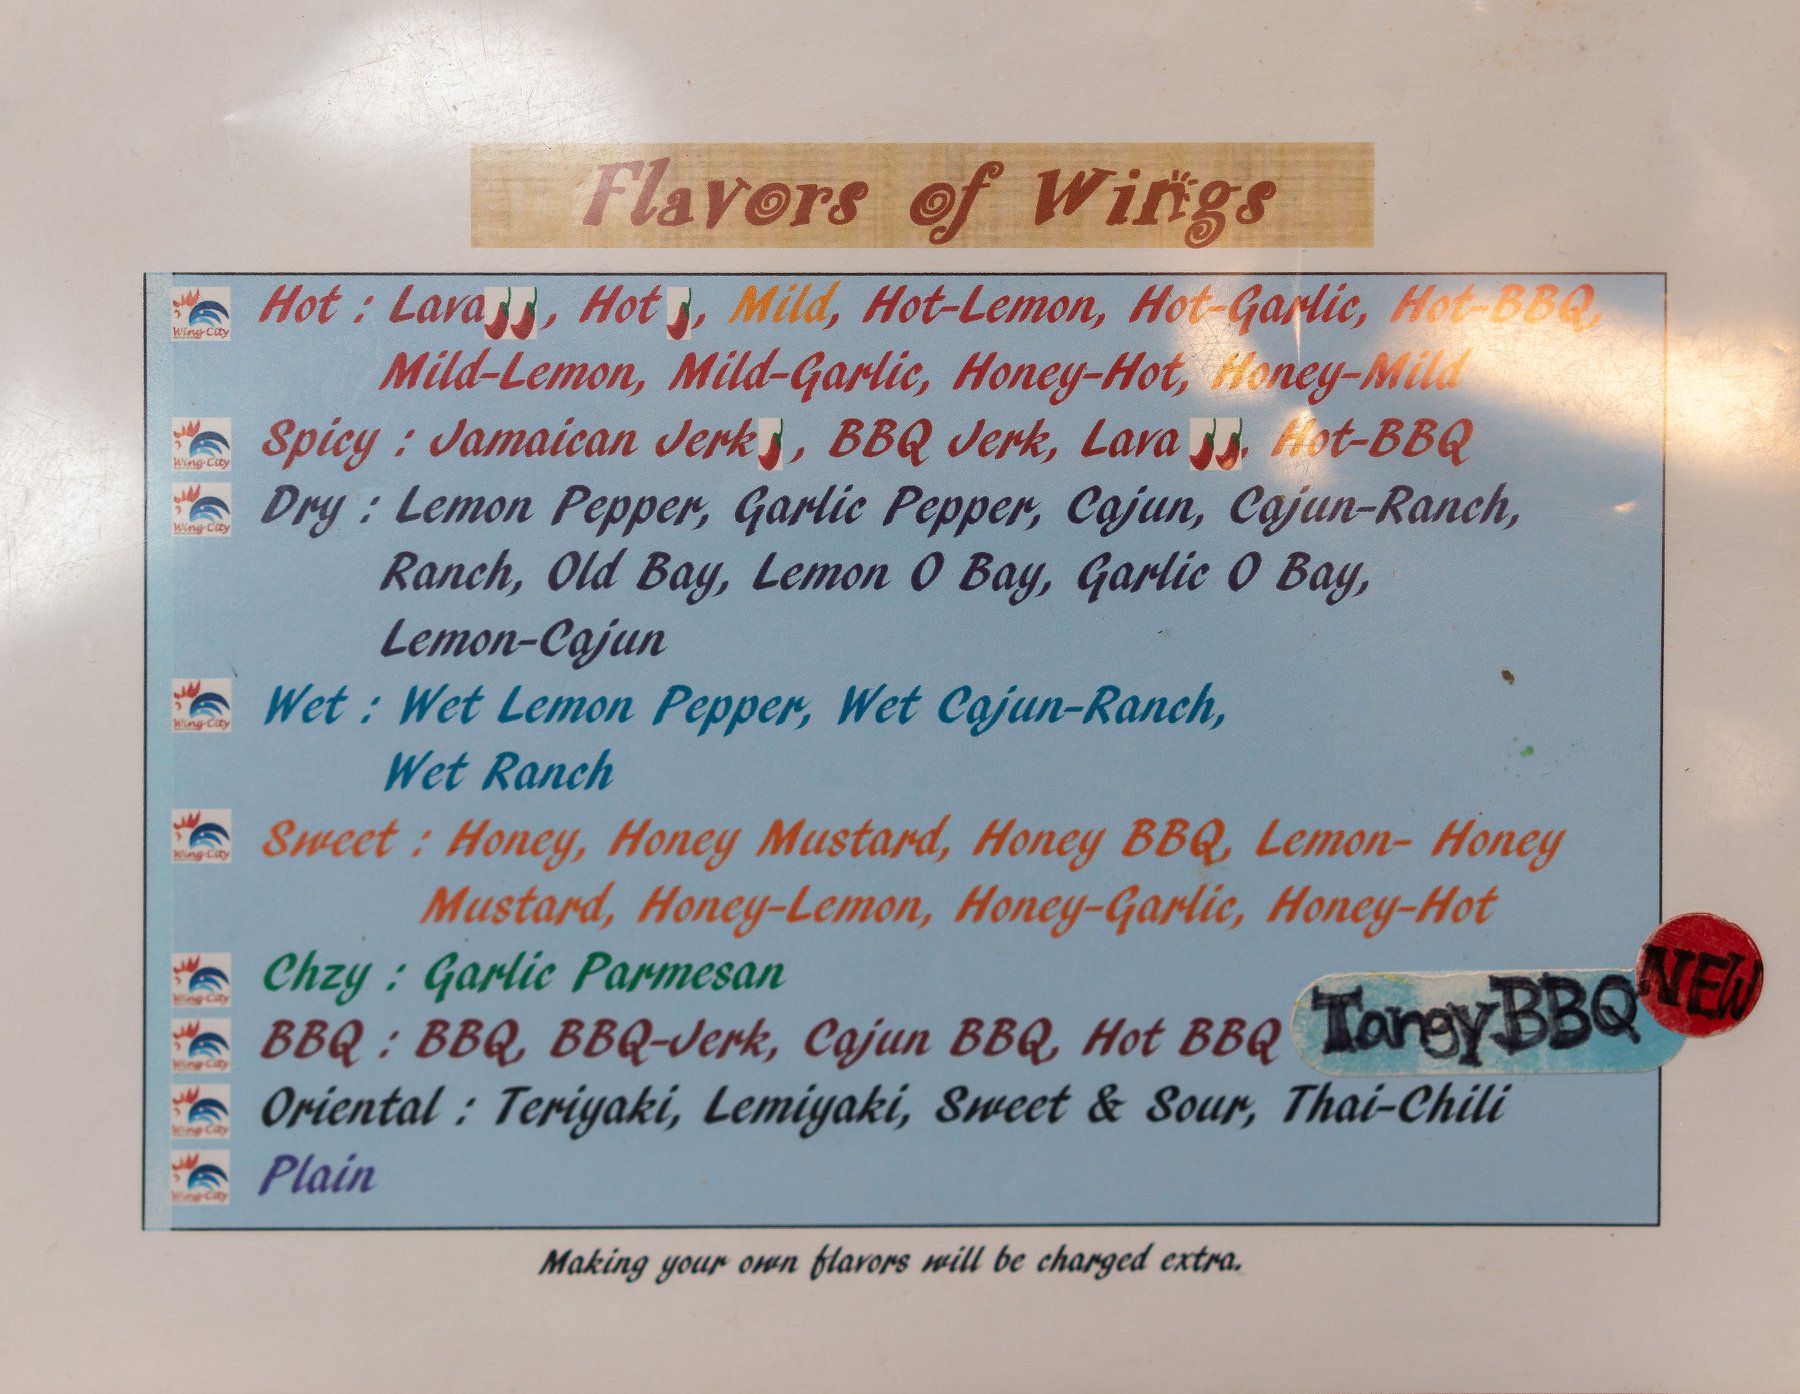 Flavors of Wings
Wing-City Hot : Lava, Hot, Mild, Hot-Lemon, Hot-Garlic, Hot-BBQ,
Mild-Lemon, Mild-Garlic, Honey-Hot, Honey-Mild
Wing-City Spicy : Jamaican Jerk, BBQ Jerk, Lava, Hot-BBQ
Wing-City Dry : Lemon Pepper, Garlic Pepper, Cajun, Cajun-Ranch,
Ranch, Old Bay, Lemon O Bay, Garlic O Bay,
Lemon-Cajun
Wing-City Wet : Wet Lemon Pepper, Wet Cajun-Ranch,
Wet Ranch
Wing-City Sweet : Honey, Honey Mustard, Honey BBQ, Lemon- Honey
Mustard, Honey-Lemon, Honey-Garlic, Honey-Hot
Wing-City Chzy : Garlic Parmesan
Wing-City BBQ : BBQ, BBQ-Jerk, Cajun BBQ, Hot BBQ Tangy BBQ NEW
Wing-City Oriental : Teriyaki, Lemiyaki, Sweet & Sour, Thai-Chili
Wing-City Plain
Making your own flavors will be charged extra.